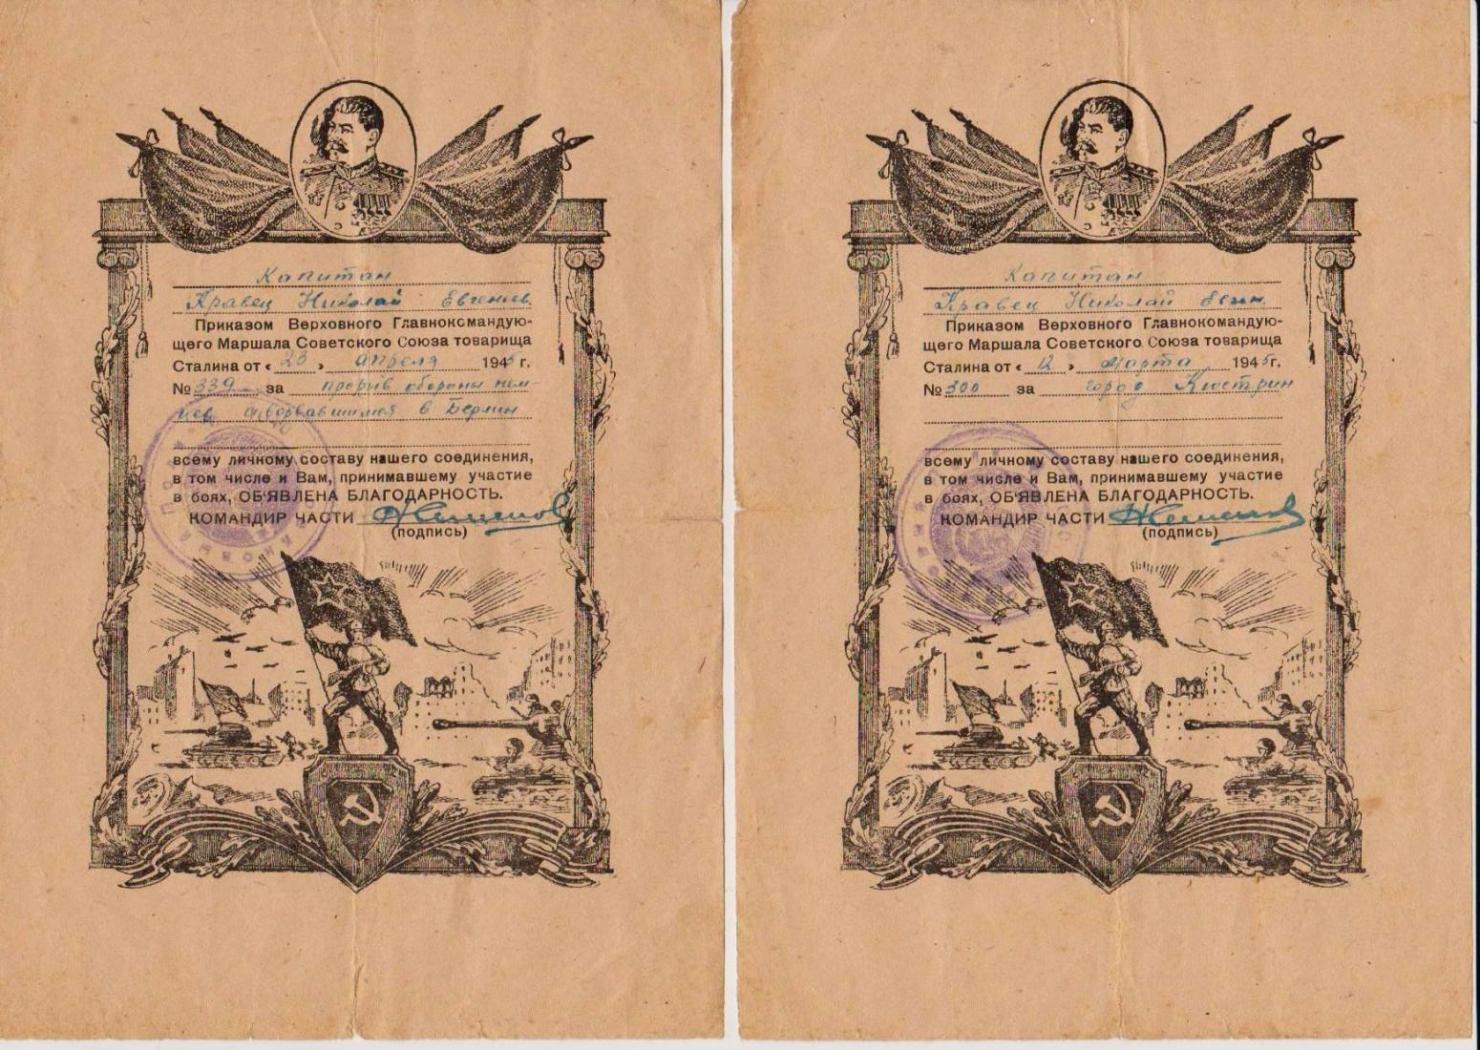 Капитан
Кравец Николай Евгеньев.
Приказом Верховного Главнокомандую-
щего Маршала Советского Союза товарища
Сталина от « 23 » апреля 1945 г.
№ 339 за прорыв обороны нем-
цев и ворвавшимся в Берлин
всему личному составу нашего соединения,
в том числе и Вам, принимавшему участие
в боях, ОБ'ЯВЛЕНА БЛАГОДАРНОСТЬ.
КОМАНДИР ЧАСТИ
(подпись)
Капитан
Кравец Николай Евген.
Приказом Верховного Главнокомандую-
щего Маршала Советского Союза товарища
Сталина от « 12 » марта 1945 г.
№ 300 за город Кюстрин
всему личному составу нашего соединения,
в том числе и Вам, принимавшему участие
в боях, ОБ'ЯВЛЕНА БЛАГОДАРНОСТЬ.
КОМАНДИР ЧАСТИ
(подпись)